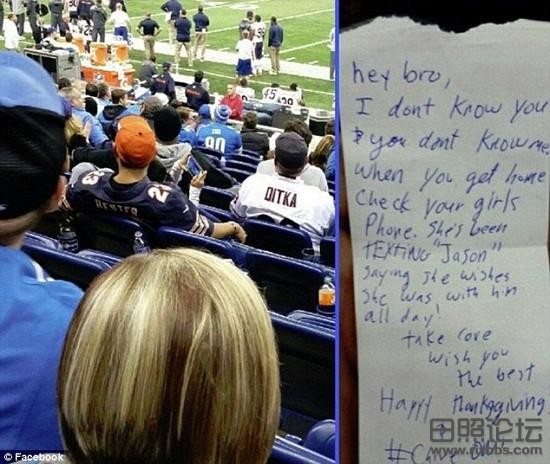 45
90
HESTER
23
DITKA
hey bro,
I dont know you
& you dont know me
when you get home
Check your girls
Phone. She's been
TEXTING "Jason"
Saying she wishes
She was with him
all day!
take care
wish you
the best
Happy thanksgiving
© Facebook